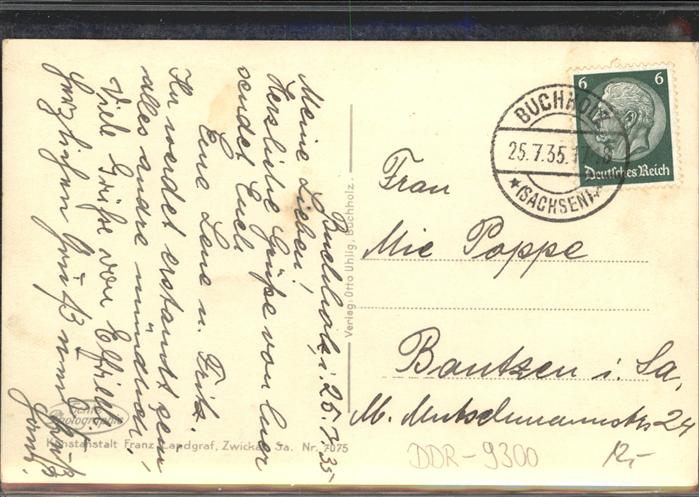 Buchholz, i. 25.7.35
Meine Lieben!
Herzliche Grüße von hier
sendet Euch
Eure Lene u. Fritz.
Ihr werdet erstaunt sein,
alles andre mündlich.
Viele Grüße von
Herzlichen Gruß
Verlag: Otto Uhlig, Buchholz.
BUCHHOLZ
25.7.35.
(SACHSEN)
6 6
Deutsches Reich
Frau
Mie Poppe
Bautzen i. Sa.
M. Mutschmannstr 24
Echte
Photographie
Kunstanstalt Franz Landgraf, Zwickau Sa. Nr. 7075
DDR-9300
12,-